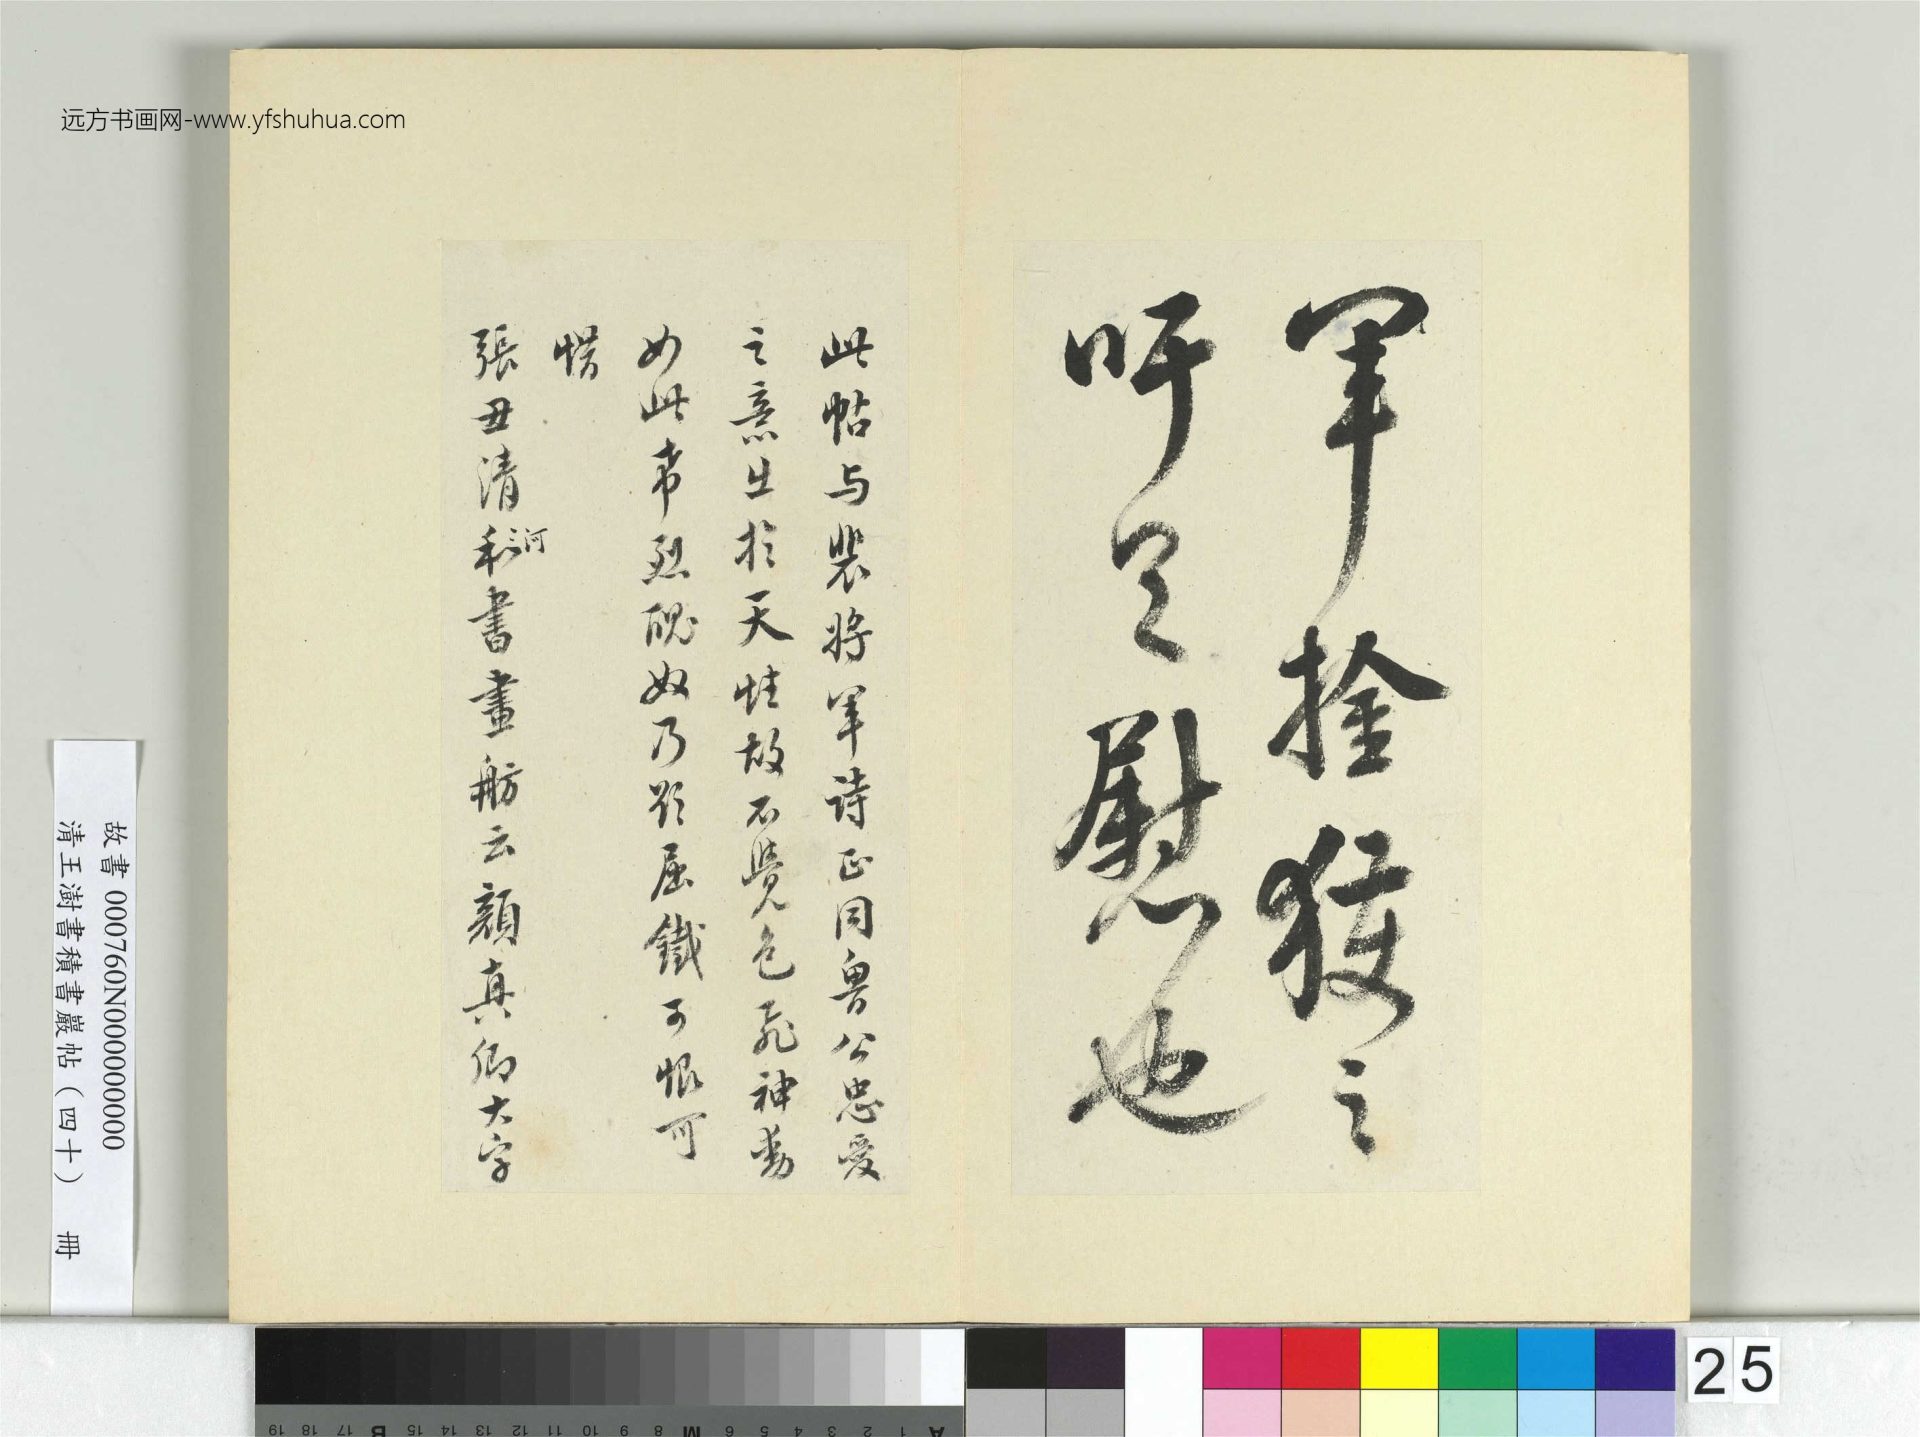 远方书画网-www.yfshuhua.com
軍擒獲之
吁足慰也
此帖与裴将軍詩正同魯公忠愛
之意生於天性故不覺色飛神動
如此常熟醜奴乃欲屈鐵可恨可
恨
張丑清河書畫舫云顏真卿大字
故書 000760N000000000
清王澍書積書巖帖(四十) 冊
25
A 1 2 3 4 5 6 M 8 9 10 11 12 13 14 15 B 17 18 19